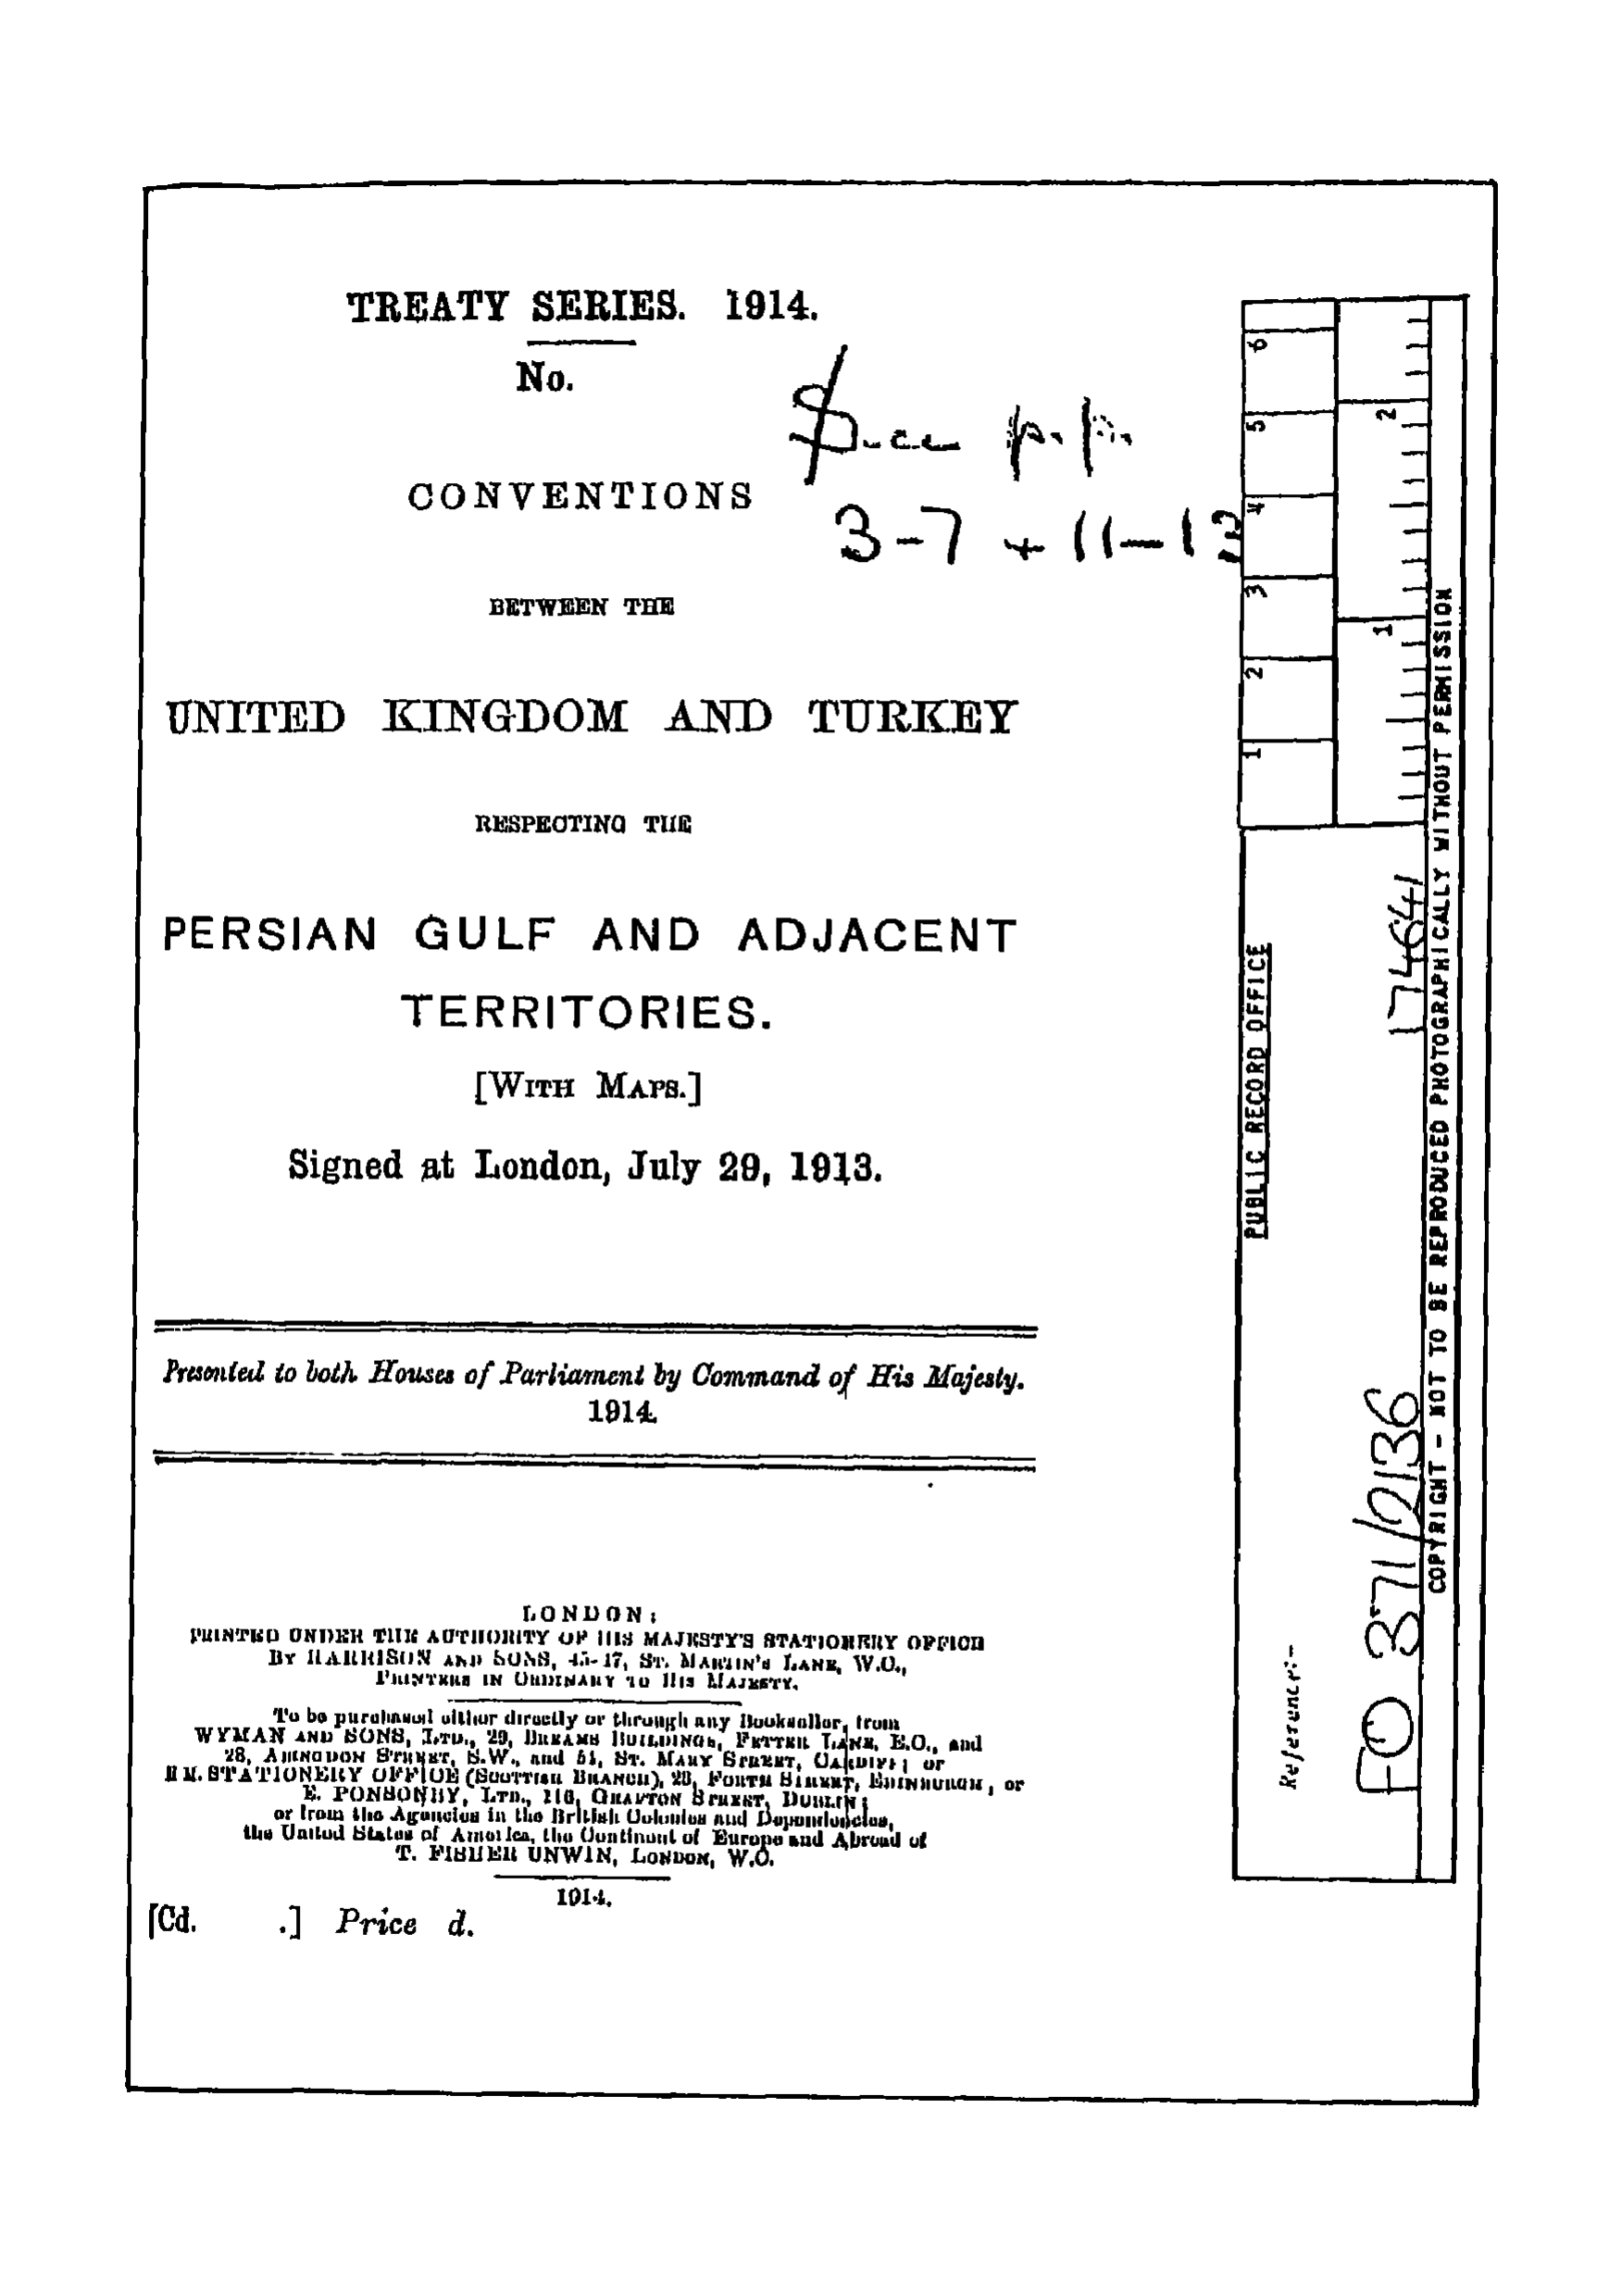 TREATY SERIES. 1914.
No.
3-7 + 11-13
CONVENTIONS
BETWEEN THE
UNITED KINGDOM AND TURKEY
RESPECTING THE
PERSIAN GULF AND ADJACENT
TERRITORIES.
[WITH MAPS.]
Signed at London, July 29, 1913.
Presented to both Houses of Parliament by Command of His Majesty.
1914.
LONDON:
PRINTED UNDER THE AUTHORITY OF HIS MAJESTY'S STATIONERY OFFICE
BY HARRISON AND SONS, 45-47, ST. MARTIN'S LANE, W.C.,
PRINTERS IN ORDINARY TO HIS MAJESTY.
To be purchased either directly or through any Bookseller, from
WYMAN AND SONS, LTD., 29, BREAMS BUILDINGS, FETTER LANE, E.C., and
28, ABINGDON STREET, S.W., and 54, ST. MARY STREET, CARDIFF; or
H.M. STATIONERY OFFICE (SCOTTISH BRANCH), 23, FORTH STREET, EDINBURGH; or
E. PONSONBY, LTD., 116, GRAFTON STREET, DUBLIN;
or from the Agencies in the British Colonies and Dependencies,
the United States of America, the Continent of Europe and Abroad of
T. FISHER UNWIN, LONDON, W.C.
1914.
[Cd. .] Price d.
1 2 3 4 5 6
1 2
PUBLIC RECORD OFFICE
Reference:-
FO 371/2136 17464
COPYRIGHT - NOT TO BE REPRODUCED PHOTOGRAPHICALLY WITHOUT PERMISSION